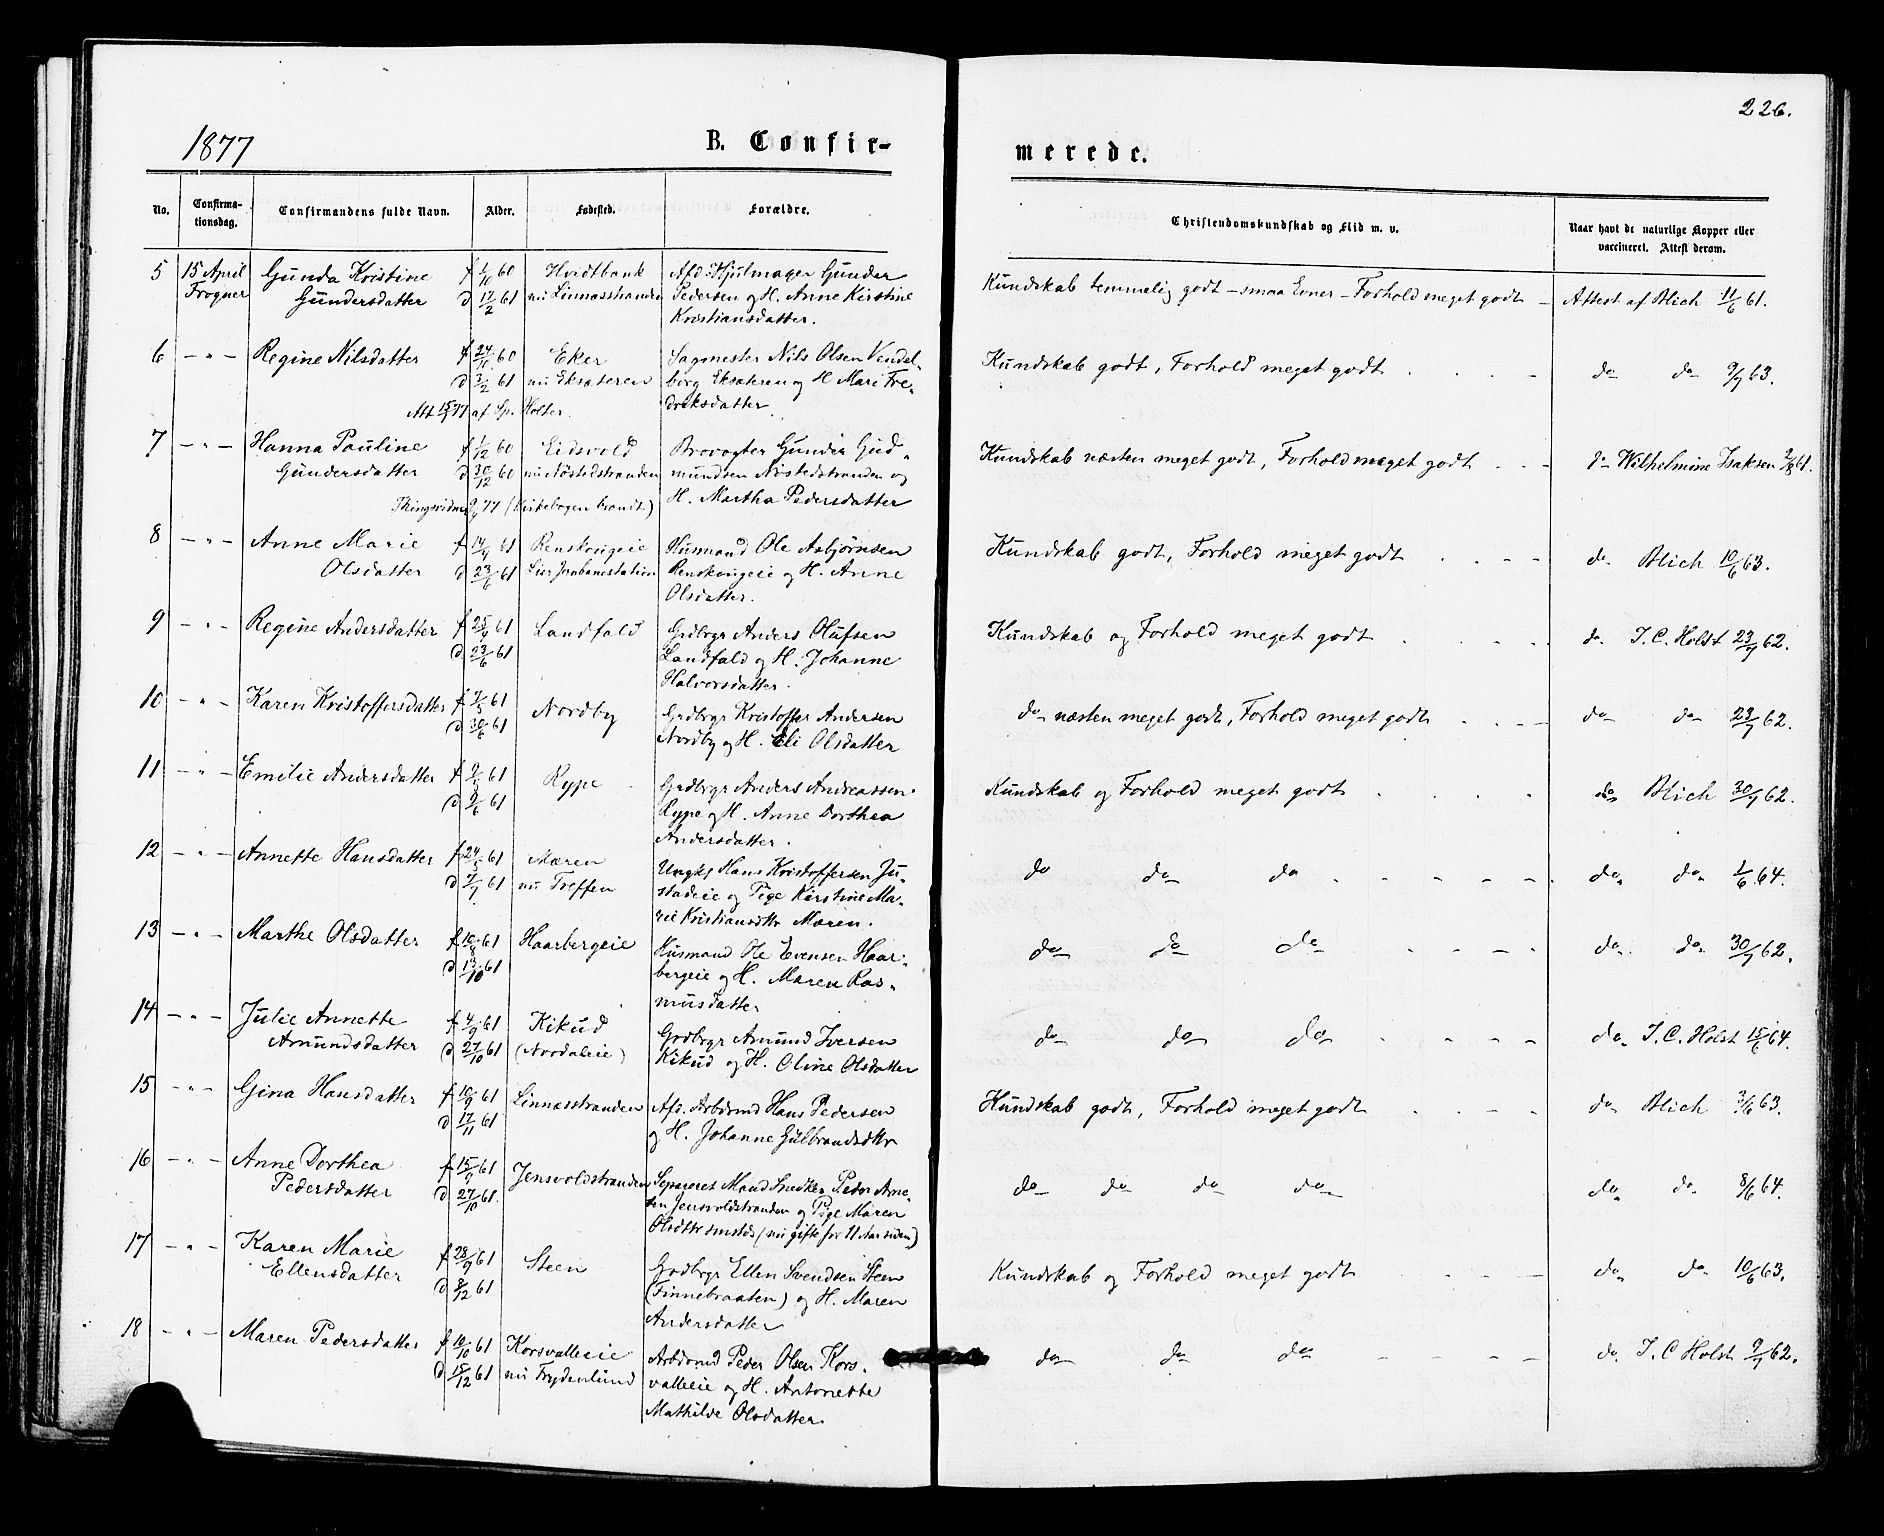 226.
1877
B. Confir-
merede.
No.
Confirma-
tionsdag.
Confirmandens fulde Navn.
Alder.
Fødested.
Forældre.
Christendomskundskab og Flid m. v.
Naar havt de naturlige Kopper eller
vaccineret. Attest derom.
5 15 April Gunda Kristine f 1/10 60 Hvidtbank Afd. Hjulmager Gunder
Frogner Gundersdatter d 17/2 61 nu Linnæsstranden Pedersen og H. Anne Kirstine
Kristiansdatter.
Kundskab temmelig godt – smaa Evner – Forhold meget godt – Attest af Blich 11/6 61.
6 – " – Regine Nilsdatter f 24/11 60 Eker Sagmester Nils Olsen Vendel-
d 3/2 61 nu Eksæteren borg Eksæteren og H. Mari Fre-
Att 15/2 77 af Sp. Holter. driksdatter
Kundskab godt, Forhold meget godt . . . – do do 9/7 63.
7 – " – Hanna Pauline f 1/12 60 Eidsvold Brovogter Gunder Gud-
Gundersdatter d 30/12 60 nu Nøstedstranden mundsen Nøstedstranden og
Thingsvidne 77 (Kirkebogen brændt.) H. Martha Pedersdatter
Kundskab næsten meget godt, Forhold meget godt . . – do Wilhelmine Isaksen 61.
8 – " – Anne Marie f 14/4 61 Renskougeie Husmand Ole Asbjørnsen
Olsdatter d 23/6 61 Lier Jernbanestation Renskougeie og H. Anne
Olsdatter.
Kundskab godt, Forhold meget godt . . – – do Blich 10/6 63.
9 – " – Regine Andersdatter f 25/4 61 Landfald Grdbrgr Anders Olufsen
d 23/6 61 Landfald og H. Johanne
Halvorsdatter.
Kundskab og Forhold meget godt . . – – do. J. C. Holst 23/7 62.
10 – " – Karen Kristoffersdatter f 7/5 61 Nordby Grdbrgr Kristoffer Andersen
d 30/6 61 Nordby og H. Eli Olsdatter
do næsten meget godt, Forhold meget godt . – – do do 23/7 62.
11 – " – Emilie Andersdatter f 61 Rype Grdbrgr Anders Andreassen
d 61 Rype og H. Anne Dorthea
Andersdatter.
Kundskab og Forhold meget godt . . . . do Blich 30/7 62.
12 – " – Annette Hansdatter f 24/5 61 Mæren Ungkl Hans Kristoffersen Ju-
d 7/7 61 nu Treffen stadeie og Pige Kirstine Ma-
rie Kristiansdtr Mæren.
do do do . – – – – . do do 1/6 64.
13 – " – Marthe Olsdatter f 10/8 61 Haarbergeie Husmand Ole Evensen Haar-
d 13/10 61 bergeie og H. Maren Ras-
musdatter
do do do . – – – do do 30/7 62.
14 – " – Julie Annette f 4/9 61 Kikud Grdbrgr Amund Iversen
Amundsdatter d 27/10 61 (Nordaleie) Kikud og H. Oline Olsdatter
do do do . – – – do J. C. Holst 15/6 64.
15 – " – Gina Hansdatter f 10/9 61 Linnæsstranden Afd. Arbdmd Hans Pedersen
d 17/11 61 og H. Johanne Gulbrandsdtr
Kundskab godt, Forhold meget godt . . – – do Blich 3/6 63.
16 – " – Anne Dorthea f 15/9 61 Jensvoldstranden Separeret Mand Snedker Peder Arne-
Pedersdatter d 27/10 61. sen Jensvoldstranden og Pige Maren
Olsdtr smstds (nu gifte for 11 Aar siden)
do do do do do do 8/6 64.
17 – " – Karen Marie f 28/9 61 Steen Grdbrgr Ellen Svendsen Steen
Ellensdatter d 8/12 61 (Finnebraaten) og H. Maren
Andersdatter
Kundskab og Forhold meget godt . – – do do 10/6 63.
18 – " – Maren Pedersdatter f 10/10 61 Korsvalleeie Arbdmd Peder Olsen Kors-
d 15/12 61 nu Frydenlund valleeie og H. Antonette
Mathilde Olsdatter.
do do do – – – – do. J. C Holst 9/7 62.